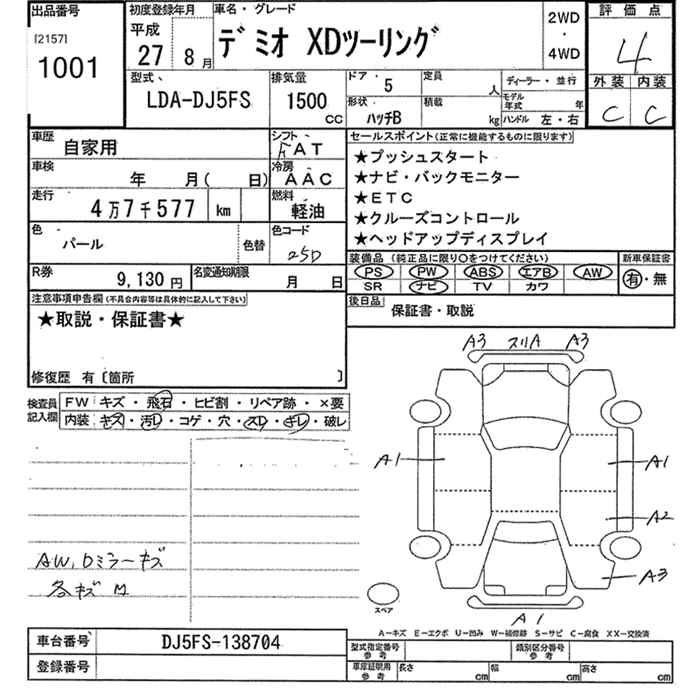 出品番号
[2157]
1001
初度登録年月
平成
27年 8月
車名・グレード
デミオ XDツーリング
2WD
・
4WD
評価点
4
外装 内装
C C
型式
LDA-DJ5FS
排気量
1500 CC
ドア・ 5
形状 ハッチB
定員 人
積載 kg
ディーラー・並行
モデル年式 年
ハンドル 左・右
車歴
自家用
シフト
FAT
車検
年 月( 日)
冷房
AAC
走行
4万7千577 km
燃料
軽油
色
パール
色替
色コード
25D
R券
9,130円
名変通知期限
月 日
セールスポイント(正常に機能するものに限ります)
★プッシュスタート
★ナビ・バックモニター
★ETC
★クルーズコントロール
★ヘッドアップディスプレイ
装備品(純正品に限り○をつけてください)
PS PW ABS エアB AW
SR ナビ TV カワ
新車保証書
有・無
後日品
保証書・取説
注意事項申告欄(不具合内容等は具体的に記入して下さい)
★取説・保証書★
修復歴 有〔箇所 〕
検査員記入欄
FW キズ・飛石・ヒビ割・リペア跡・×要
内装 キズ・汚レ・コゲ・穴・スレ・キレ・破レ
AW,Dミラーキズ
各キズ M
A3 スリA A3
A1
A1
A2
A3
A1
スペア
A−キズ E−エクボ U−凹み W−補修跡 S−サビ C−腐食 XX−交換済
車台番号
DJ5FS-138704
登録番号
型式指定番号 参考
類別区分番号 参考
車庫証明用 参考
長さ cm
幅 cm
高さ cm